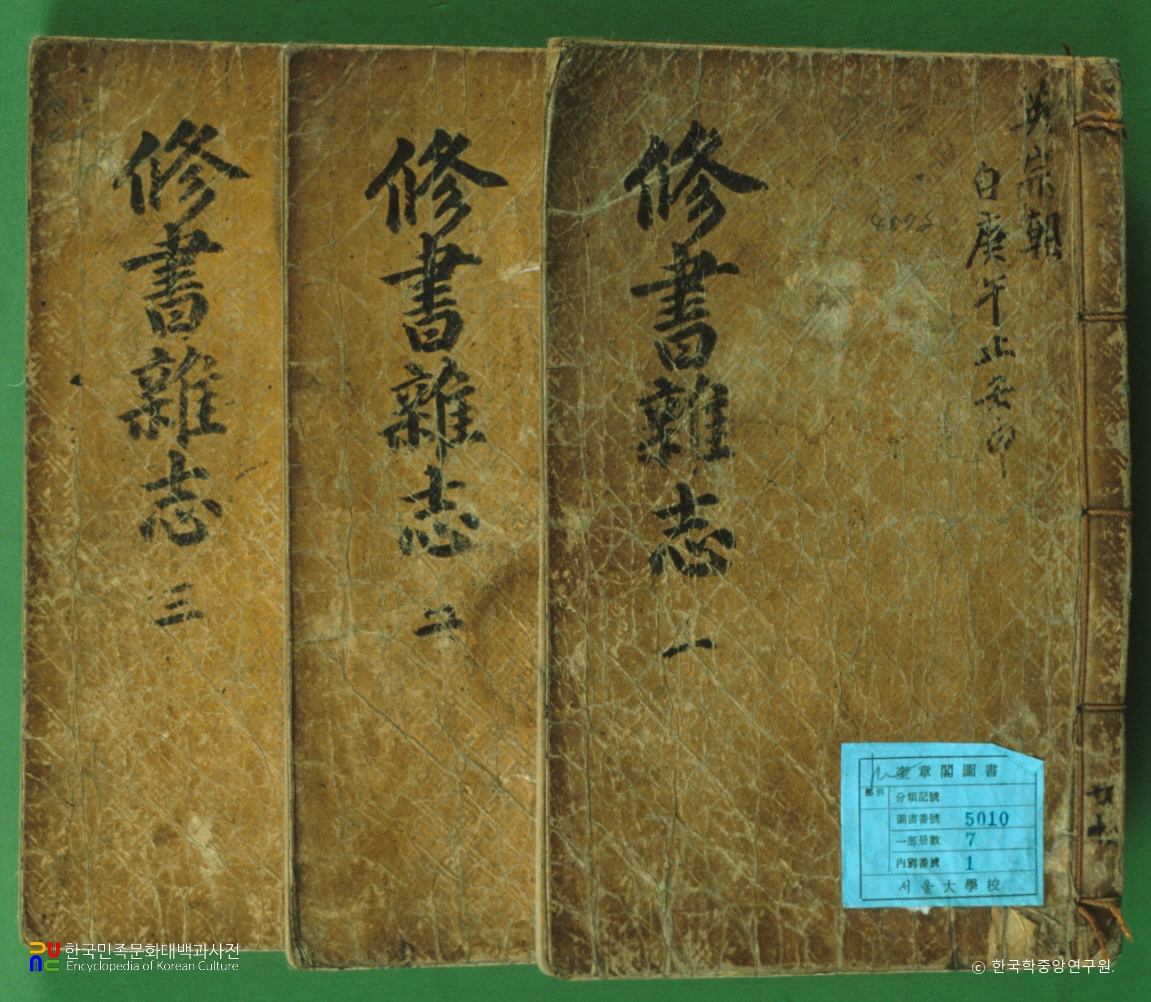 英宗朝
自庚午止辛卯
修書雜志 一
修書雜志 二
修書雜志 三
奎章閣圖書
部別
分類記號
圖書番號 5010
一部册數 7
内別番號 1
서울大學校
한국민족문화대백과사전
Encyclopedia of Korean Culture
© 한국학중앙연구원.